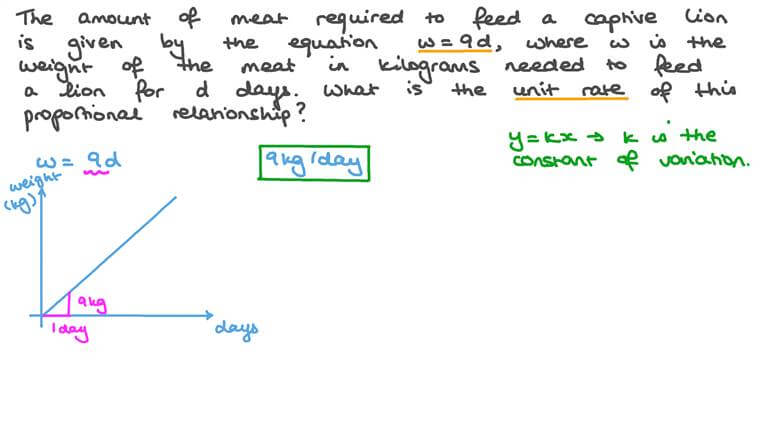 The amount of meat required to feed a captive lion
is given by the equation w = 9d, where w is the
weight of the meat in kilograms needed to feed
a lion for d days. What is the unit rate of this
proportional relationship?
y = kx → k is the
constant of variation.
w = 9d
9kg/day
weight
(kg)
9kg
1day
days